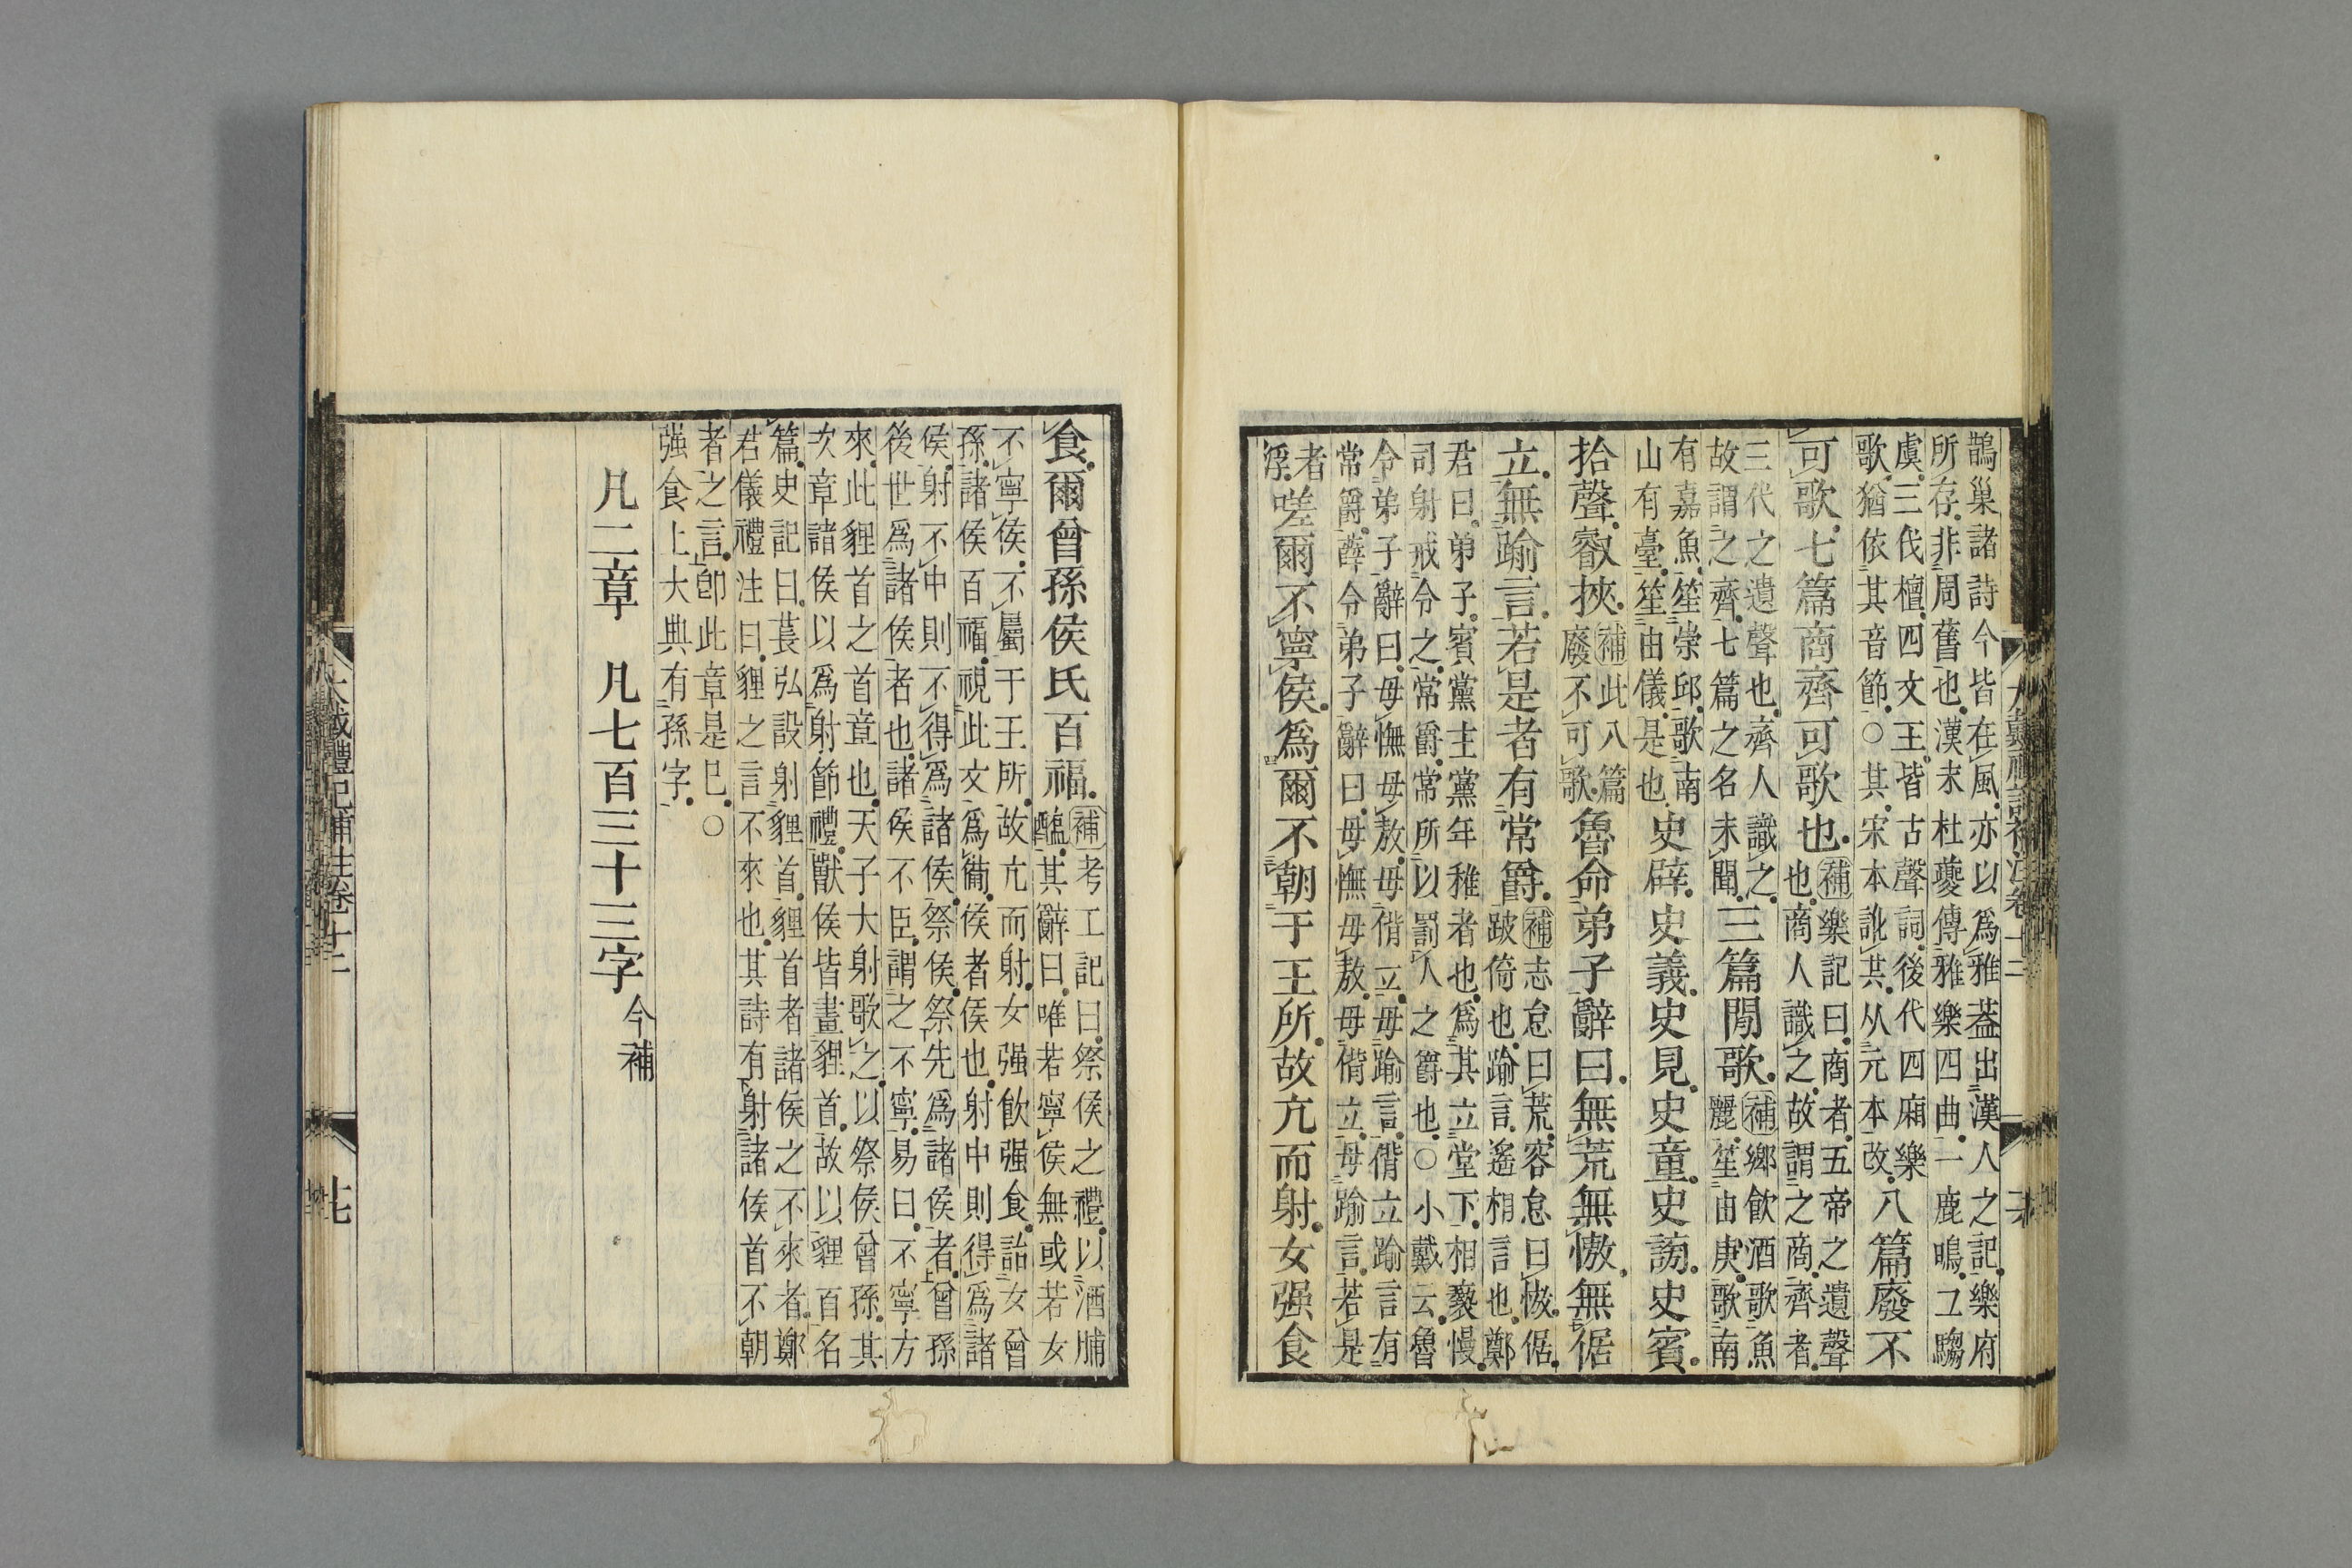 鵲巢諸詩今皆在風亦以爲雅葢出漢人之記樂府
所存非周舊也漢末杜夔傳雅樂四曲一鹿鳴二騶
虞三伐檀四文王皆古聲詞後代四廂樂
歌猶依其音節○其宋本訛其从元本改
八篇廢不
可歌七篇商齊可歌也
補樂記曰商者五帝之遺聲
也商人識之故謂之商齊者
三代之遺聲也齊人識之
故謂之齊七篇之名未聞
三篇閒歌
補鄉飲酒歌魚
麗笙由庚歌南
有嘉魚笙崇邱歌南
山有臺笙由儀是也
史辟史義史見史童史謗史賓
拾聲叡挾
補此八篇
廢不可歌
魯命弟子辭曰無荒無慠無倨
立無踰言若是者有常爵
補志怠曰荒容怠曰慠倨
跛倚也踰言遙相言也鄭
君曰弟子賓黨主黨年稚者也爲其立堂下相褻慢
司射戒令之常爵常所以罰人之爵也○小戴云魯
令弟子辭曰毋憮毋敖毋偝立毋踰言偝立踰言有
常爵薛令弟子辭曰毋憮毋敖毋偝立毋踰言若是
者
浮
嗟爾不寧侯爲爾不朝于王所故亢而射女强食
食爾曾孫侯氏百福
補考工記曰祭侯之禮以酒脯
醢其辭曰唯若寧侯無或若女
不寧侯不屬于王所故亢而射女强飮强食詒女曾
孫諸侯百福視此文爲備侯者侯也射中則得爲諸
侯射不中則不得爲諸侯祭侯祭先爲諸侯者曾孫
後世爲諸侯者也諸侯不臣謂之不寧易曰不寧方
來此貍首之首章也天子大射歌之以祭侯曾孫其
次章諸侯以爲射節禮獸侯皆畫貍首故以貍首名
篇史記曰萇弘設射貍首貍首者諸侯之不來者鄭
君儀禮注曰貍之言不來也其詩有射諸侯首不朝
者之言卽此章是巳○
强食上大典有孫字
凡二章　凡七百三十三字
今補
大戴禮記補注卷十二
十七